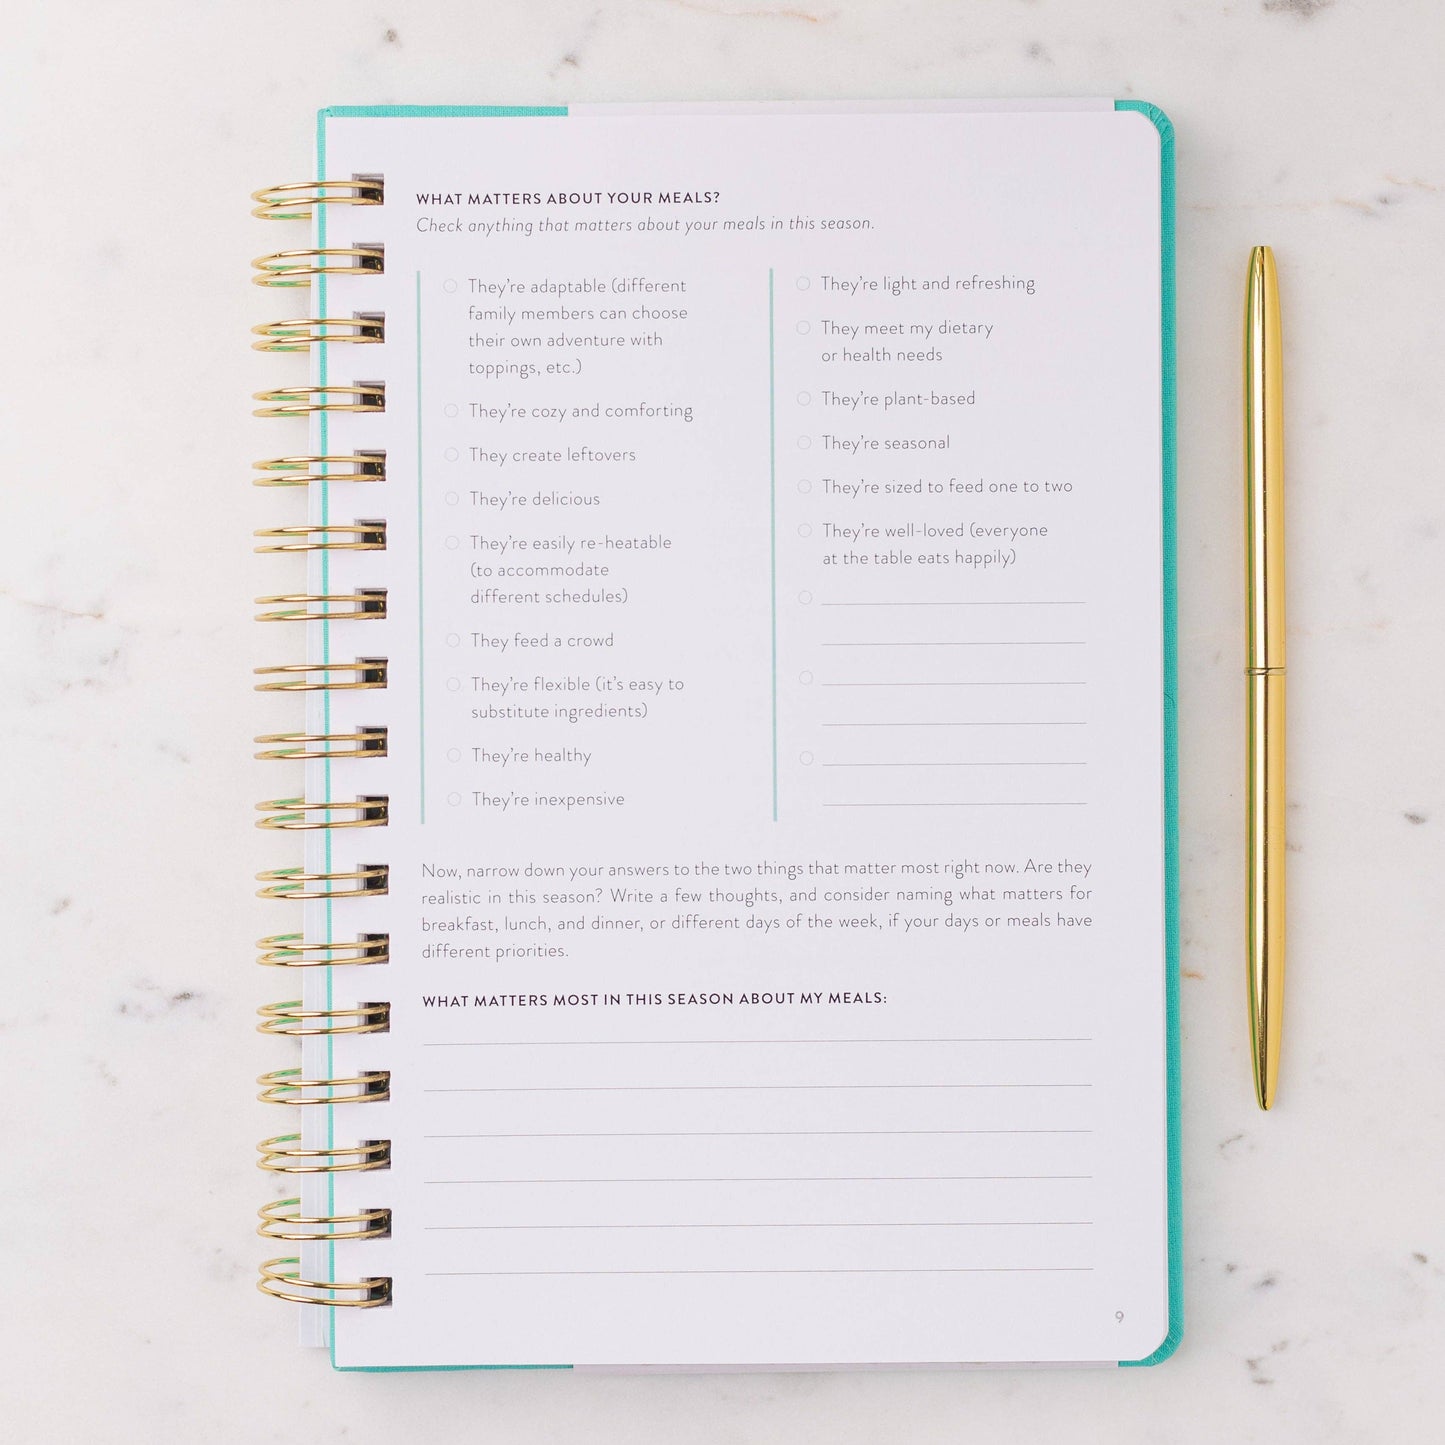 WHAT MATTERS ABOUT YOUR MEALS?
Check anything that matters about your meals in this season.
They're adaptable (different
family members can choose
their own adventure with
toppings, etc.)
They're cozy and comforting
They create leftovers
They're delicious
They're easily re-heatable
(to accommodate
different schedules)
They feed a crowd
They're flexible (it's easy to
substitute ingredients)
They're healthy
They're inexpensive
They're light and refreshing
They meet my dietary
or health needs
They're plant-based
They're seasonal
They're sized to feed one to two
They're well-loved (everyone
at the table eats happily)
Now, narrow down your answers to the two things that matter most right now. Are they
realistic in this season? Write a few thoughts, and consider naming what matters for
breakfast, lunch, and dinner, or different days of the week, if your days or meals have
different priorities.
WHAT MATTERS MOST IN THIS SEASON ABOUT MY MEALS:
9